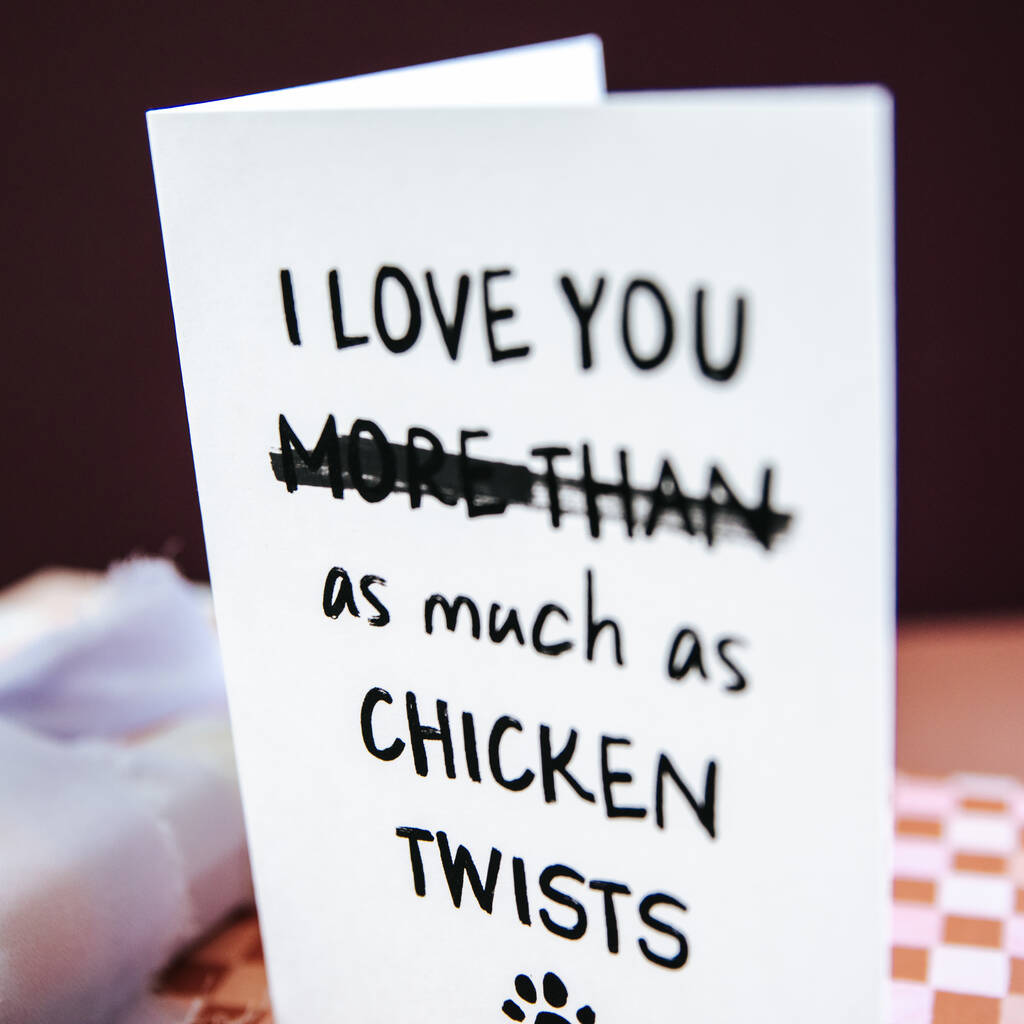 I LOVE YOU
MORE THAN
as much as
CHICKEN
TWISTS